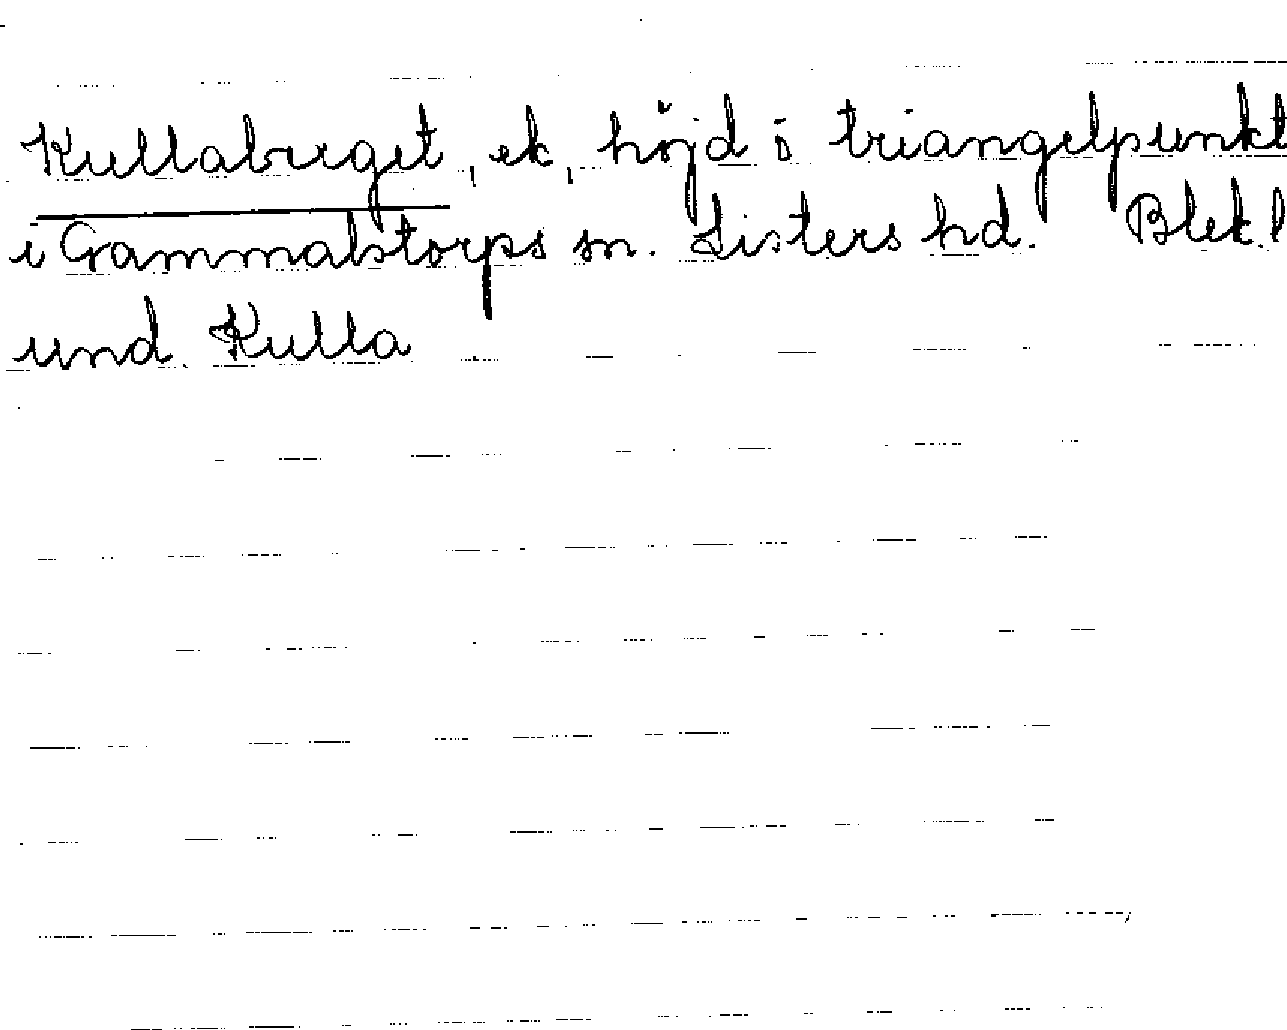 Kullaberget, ek, höjd i triangelpunkt
i Gammalstorps sn. Listers hd. Blek.l
und. Kulla